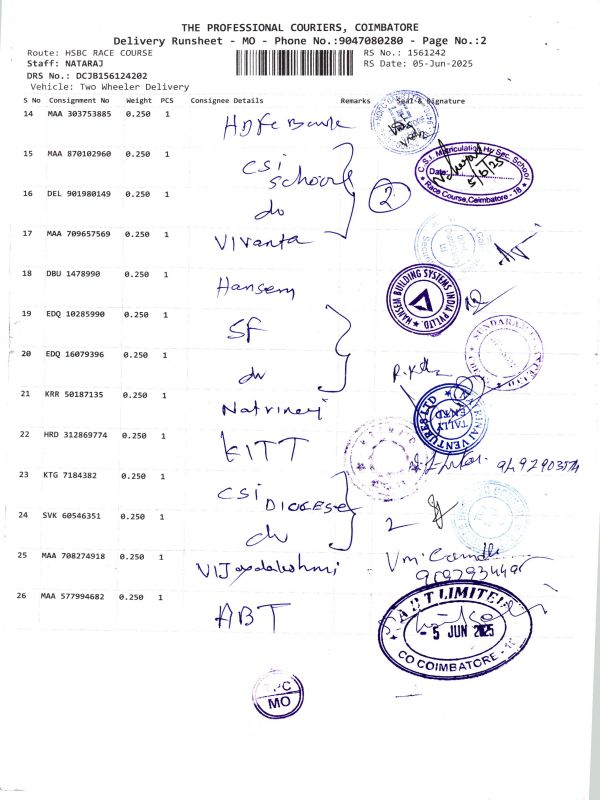 THE PROFESSIONAL COURIERS, COIMBATORE
Delivery Runsheet - MO - Phone No.:9047080280 - Page No.:2
Route: HSBC RACE COURSE RS No.: 1561242
Staff: NATARAJ RS Date: 05-Jun-2025
DRS No.: DCJB156124202
Vehicle: Two Wheeler Delivery
S No Consignment No Weight PCS Consignee Details Remarks Seal & Signature
14 MAA 303753885 0.250 1 HDFC Bank
15 MAA 870102960 0.250 1 CSI School
C.S.I. Matriculation Hr. Sec. School
Date: 5/6/25
Race Course, Coimbatore - 18
16 DEL 901980149 0.250 1 do 2
17 MAA 709657569 0.250 1 Vivanta
18 DBU 1478990 0.250 1 Hansem
HANSEM BUILDING SYSTEMS INDIA PVT LTD
19 EDQ 10285990 0.250 1 SF
20 EDQ 16079396 0.250 1 do
21 KRR 50187135 0.250 1 Natrinai
NATRINAI VENTURES LTD
TALLY
22 HRD 312869774 0.250 1 KITT
23 KTG 7184382 0.250 1 CSI DIOCESE
24 SVK 60546351 0.250 1 do 2
25 MAA 708274918 0.250 1 Vijayalakshmi
26 MAA 577994682 0.250 1 ABT
ABT LIMITED
- 5 JUN 2025
COIMBATORE
MO